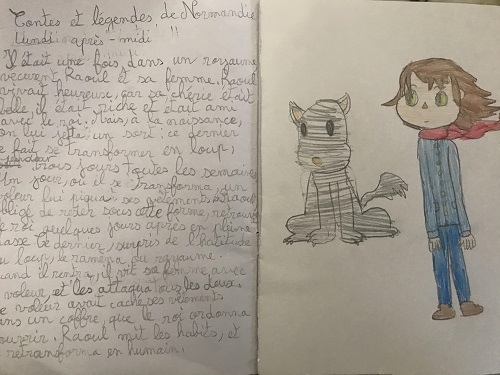 Contes et légendes de Normandie
Lundi après-midi !!
Il était une fois, dans un royaume
vécurent Raoul et sa femme. Raoul
vivait heureux, car sa chérie était
belle, il était riche et était ami
avec le roi. Mais, à la naissance,
on lui jeta un sort : ce dernier
le fait se transformer en loup,
trois jours toutes les semaines
Un jour, où il se transforma, un
voleur lui piqua ses vêtements, Raoul
obligé de rester sous cette forme, retrouva
le roi quelques jours après en pleine
chasse. Ce dernier, surpris de l'attitude
du loup, le ramena du royaume.
Quand il rentra, il vit sa femme avec
le voleur, et les attaqua tous les deux.
Le voleur avait caché ses vêtements
dans un coffre, que le roi ordonna
d'ouvrir. Raoul mit les habits, et
se retransforma en humain.